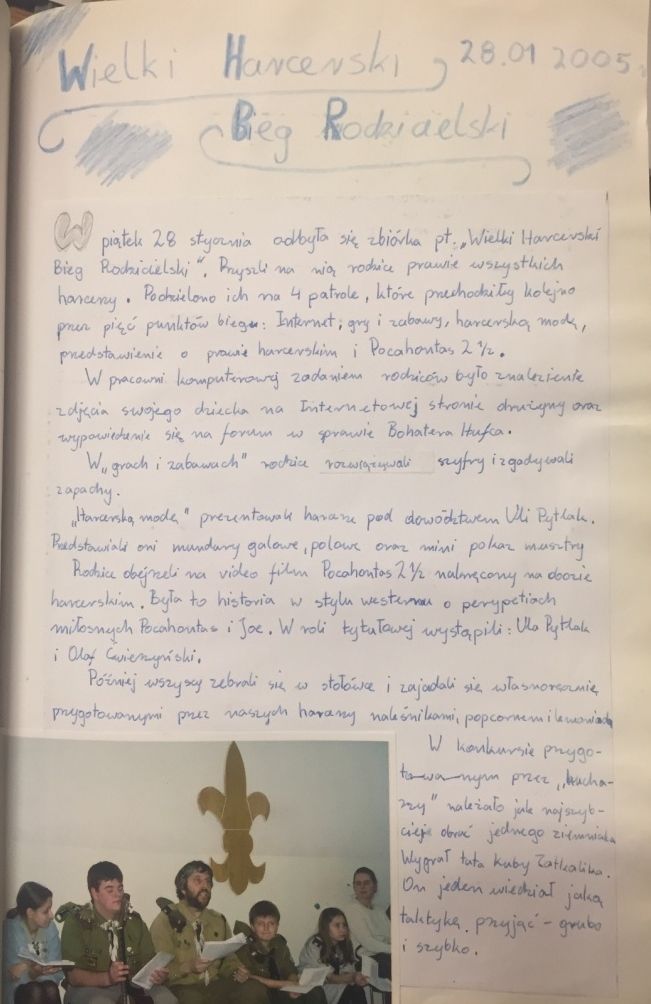 Wielki Harcerski 28.01 2005r
Bieg Rodzicielski
W piątek 28 stycznia odbyła się zbiórka pt. „Wielki Harcerski
Bieg Rodzicielski". Przyszli na nią rodzice prawie wszystkich
harcerzy. Podzielono ich na 4 patrole, które przechodziły kolejno
przez pięć punktów biegu: Internet, gry i zabawy, harcerską modę,
przedstawienie o prawie harcerskim i Pocahontas 2 ½.
W pracowni komputerowej zadaniem rodziców było znalezienie
zdjęcia swojego dziecka na Internetowej stronie drużyny oraz
wypowiedzenie się na forum w sprawie Bohatera Hufca.
W „grach i zabawach" rodzice rozwiązywali szyfry i zgadywali
zapachy.
„Harcerską modę" prezentowali harcerze pod dowództwem Uli Pytlak.
Przedstawiali oni mundury galowe, polowe oraz mini pokaz musztry
Rodzice obejrzeli na video film Pocahontas 2 ½ nakręcony na obozie
harcerskim. Była to historia w stylu westernu o perypetiach
miłosnych Pocahontas i Joe. W roli tytułowej wystąpili: Ula Pytlak
i Olaf Ćwierzyński.
Później wszyscy zebrali się w stołówce i zajadali się własnoręcznie
przygotowanymi przez naszych harcerzy naleśnikami, popcornem i lemoniadą
W konkursie przygo-
towanym przez „kucha-
rzy" należało jak najszyb-
ciej obrać jednego ziemniaka
Wygrał tata Kuby
On jeden wiedział jaką
taktykę przyjąć - grubo
i szybko.